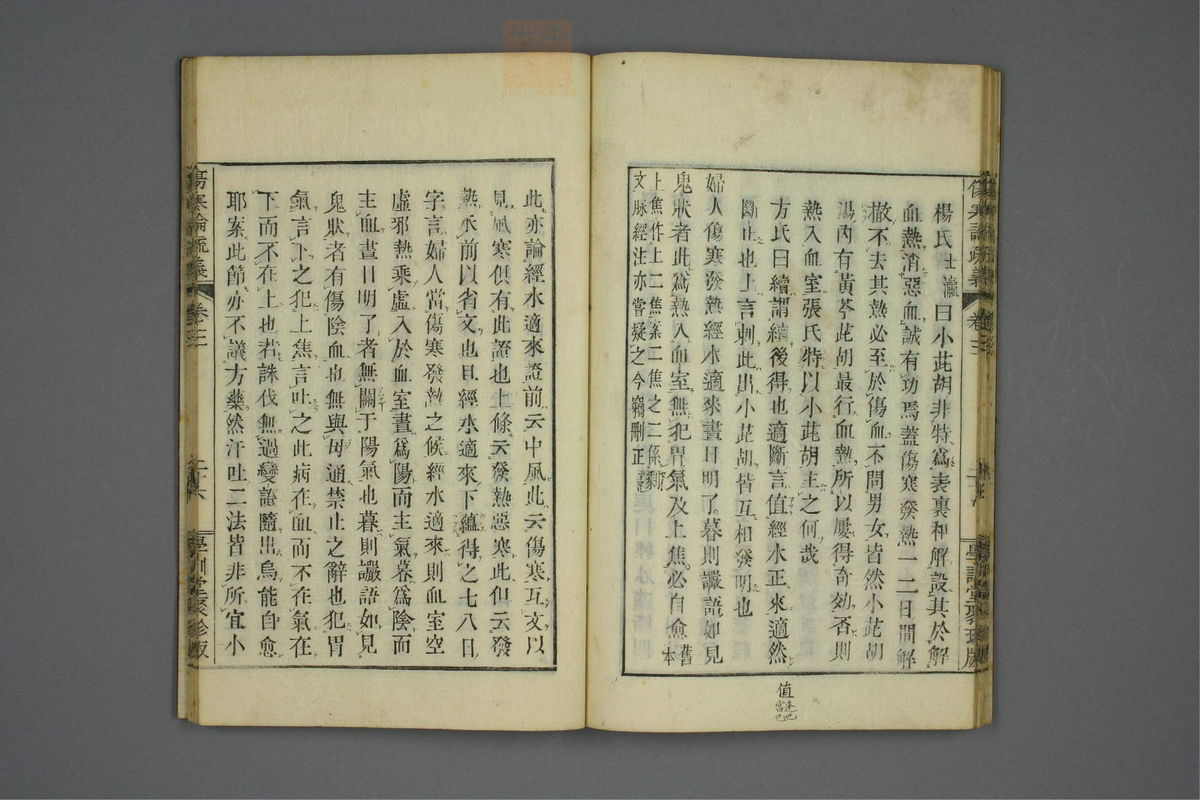 傷寒論疏義 卷三 學訓堂聚珍版
楊氏士瀛曰小茈胡非特爲表裏和解設其於解
血熱消惡血誠有功焉蓋傷寒發熱一二日間解
撤不去其熱必至於傷血不問男女皆然小茈胡
湯內有黃芩茈胡最行血熱所以屢得奇効否則
熱入血室張氏特以小茈胡主之何哉
方氏曰續謂續後得也適斷言値經水正來適然
斷止也上言刺此出小茈胡皆互相發明也
婦人傷寒發熱經水適來晝日明了暮則讝語如見
鬼狀者此爲熱入血室無犯胃氣及上焦必自愈舊本
上焦作上二焦系二焦之二係衍
文脉經注亦嘗疑之今竊刪正
値逢也當也
此亦論經水適來證前云中風此云傷寒互文以
見風寒俱有此證也上條云發熱惡寒此但云發
熱承前以省文也且經水適來下蘊得之七八日
字言婦人當傷寒發熱之候經水適來則血室空
虛邪熱乘虛入於血室晝爲陽而主氣暮爲陰而
主血晝日明了者無關于陽氣也暮則讝語如見
鬼狀者有傷陰血也無與毋通禁止之辭也犯胃
氣言下之犯上焦言吐之此病在血而不在氣在
下而不在上也若誅伐無過變證隨出烏能自愈
耶案此節亦不議方藥然汗吐二法皆非所宜小
傷寒論疏義 卷三 學訓堂聚珍版